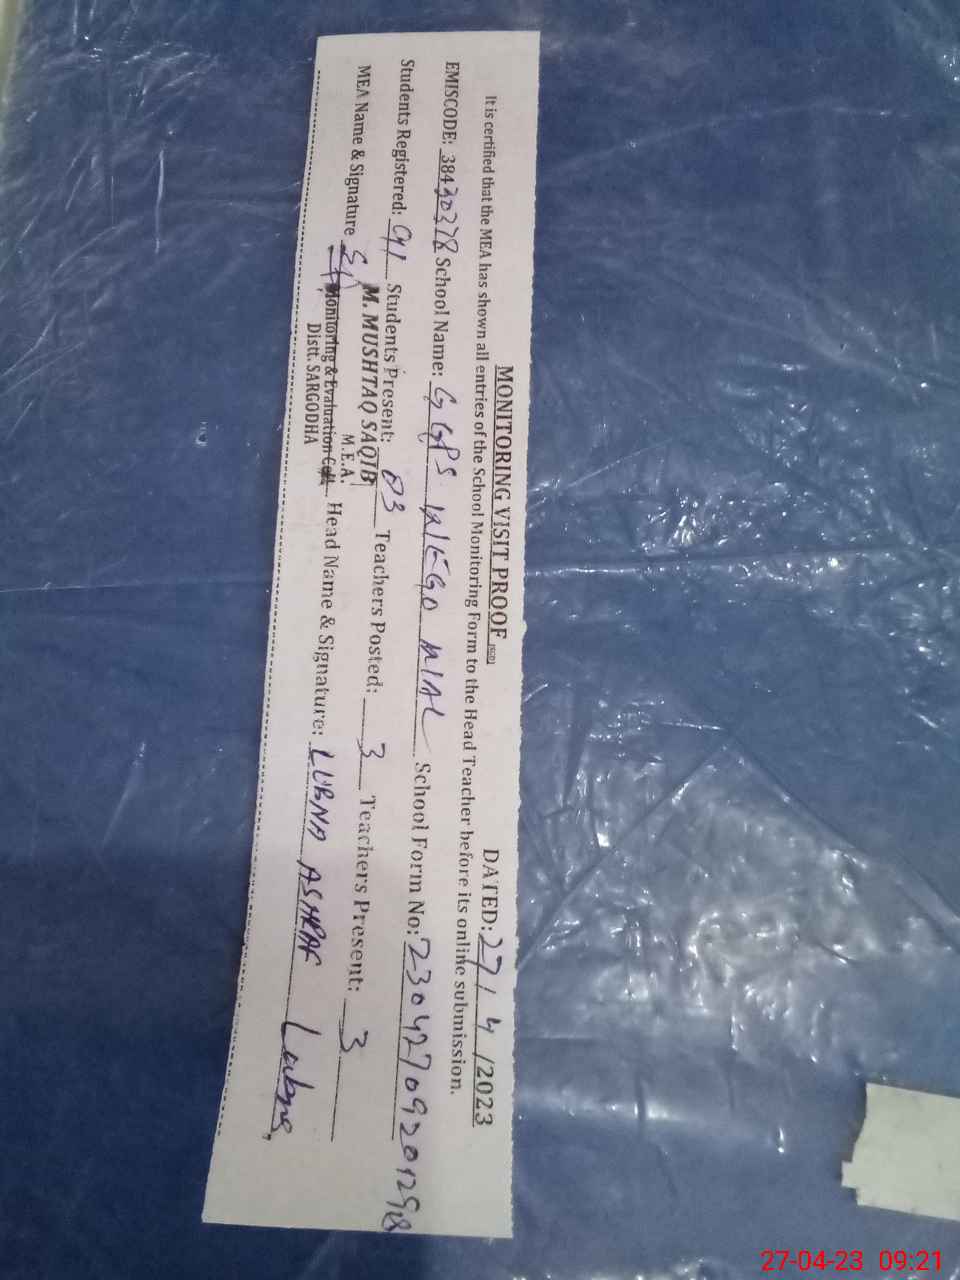 MONITORING VISIT PROOF DATED: 27 / 4 /2023
It is certified that the MEA has shown all entries of the School Monitoring Form to the Head Teacher before its online submission.
EMISCODE: 38430278 School Name: GGPS WEGO WAL School Form No: 23042709201298
Students Registered: 91 Students Present: 83 Teachers Posted: 3 Teachers Present: 3
M. MUSHTAQ SAQIB
M.E.A.
MEA Name & Signature Head Name & Signature: LUBNA ASHRAF Lubna
Monitoring & Evaluation Cell
Distt. SARGODHA
27-04-23 09:21